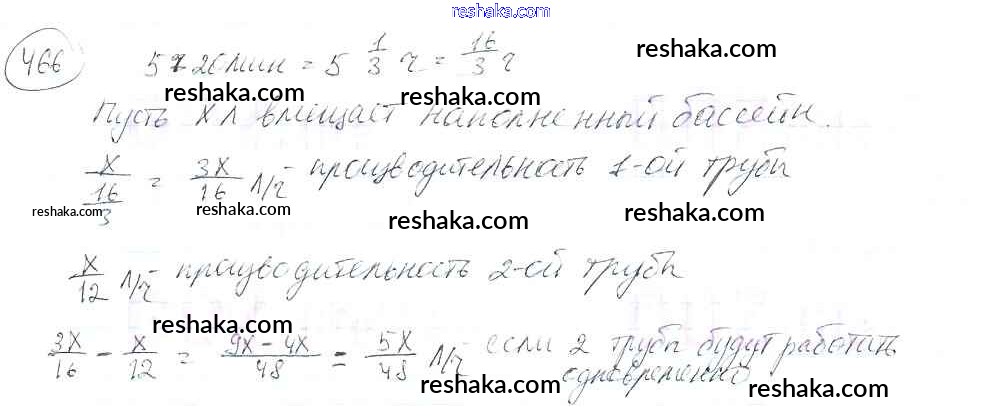 reshaka.com
466 5ч 20 мин = 5 1/3 ч = 16/3 ч reshaka.com
reshaka.com reshaka.com
Пусть X л вмещает наполненный бассейн.
X/(16/3) = 3X/16 л/ч производительность 1-ой трубы
reshaka.com reshaka.com reshaka.com reshaka.com
X/12 л/ч производительность 2-ой трубы
reshaka.com reshaka.com
3X/16 - X/12 = (9X - 4X)/48 = 5X/48 л/ч если 2 трубы будут работать
одновременно
reshaka.com reshaka.com reshaka.com